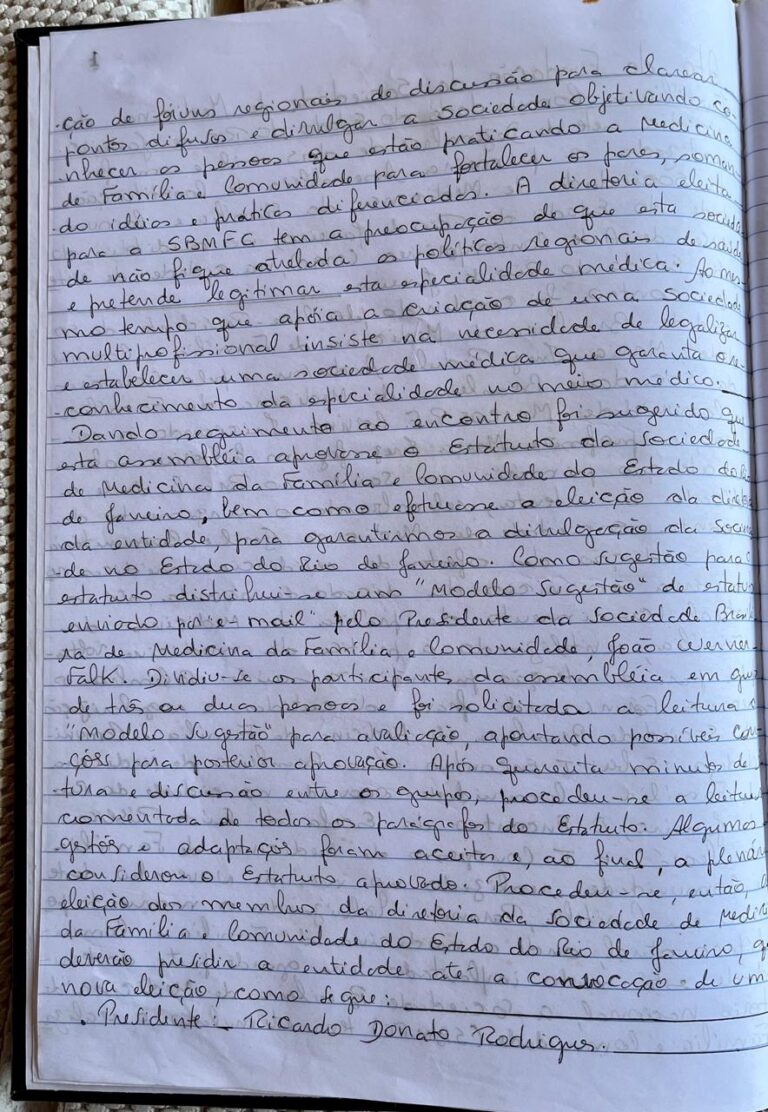 1
ção de fóruns regionais de discussão para clarear
pontos difusos e divulgar a sociedade objetivando co-
nhecer as pessoas que estão praticando a Medicina
de Família e Comunidade para fortalecer os pares, soman-
do idéias e práticas diferenciadas. A diretoria eleita
para a SBMFC tem a preocupação de que esta socieda
de não fique atrelada as políticas regionais de saúde
e pretende legitimar esta especialidade médica. Ao mes
mo tempo que apóia a criação de uma sociedade
multiprofissional insiste na necessidade de legalizar
e estabelecer uma sociedade médica que garanta o re
conhecimento da especialidade no meio médico.
Dando seguimento ao encontro foi sugerido que
esta assembléia aprovasse o Estatuto da Sociedade
de Medicina da Família e Comunidade do Estado do
de Janeiro, bem como efetuasse a eleição da
da entidade, para garantirmos a divulgação da Socie
de no Estado do Rio de Janeiro. Como sugestão para
estatuto distribuiu-se um "Modelo Sugestão" de estatu
enviado por e-mail" pelo Presidente da Sociedade
ra de Medicina da Família e Comunidade, João Werner
Falk. Dividiu-se os participantes da assembléia em
de três ou duas pessoas e foi solicitada a leitura
"Modelo Sugestão" para avaliação, apontando possíveis
ções para posterior aprovação. Após quarenta minutos de
tura e discussão entre os grupos, procedeu-se a leitur
comentada de todos os parágrafos do Estatuto. Algumas
gestões e adaptações foram aceitas e, ao final, a plenár
considerou o Estatuto aprovado. Procedeu-se, então, a
eleição dos membros da diretoria da Sociedade de Medici
da Família e Comunidade do Estado do Rio de Janeiro, q
deverão presidir a entidade até a convocação de um
nova eleição, como segue:
. Presidente: Ricardo Donato Rodrigues.